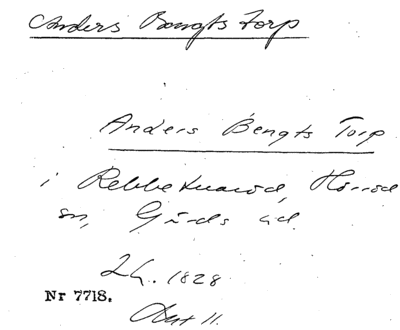 Anders Bengts Torp
Anders Bengts Torp
i Rebbetuaröd, Hörröd
sn, Gärds hd.
Lh. 1828
Nr 7718.
Akt 11.